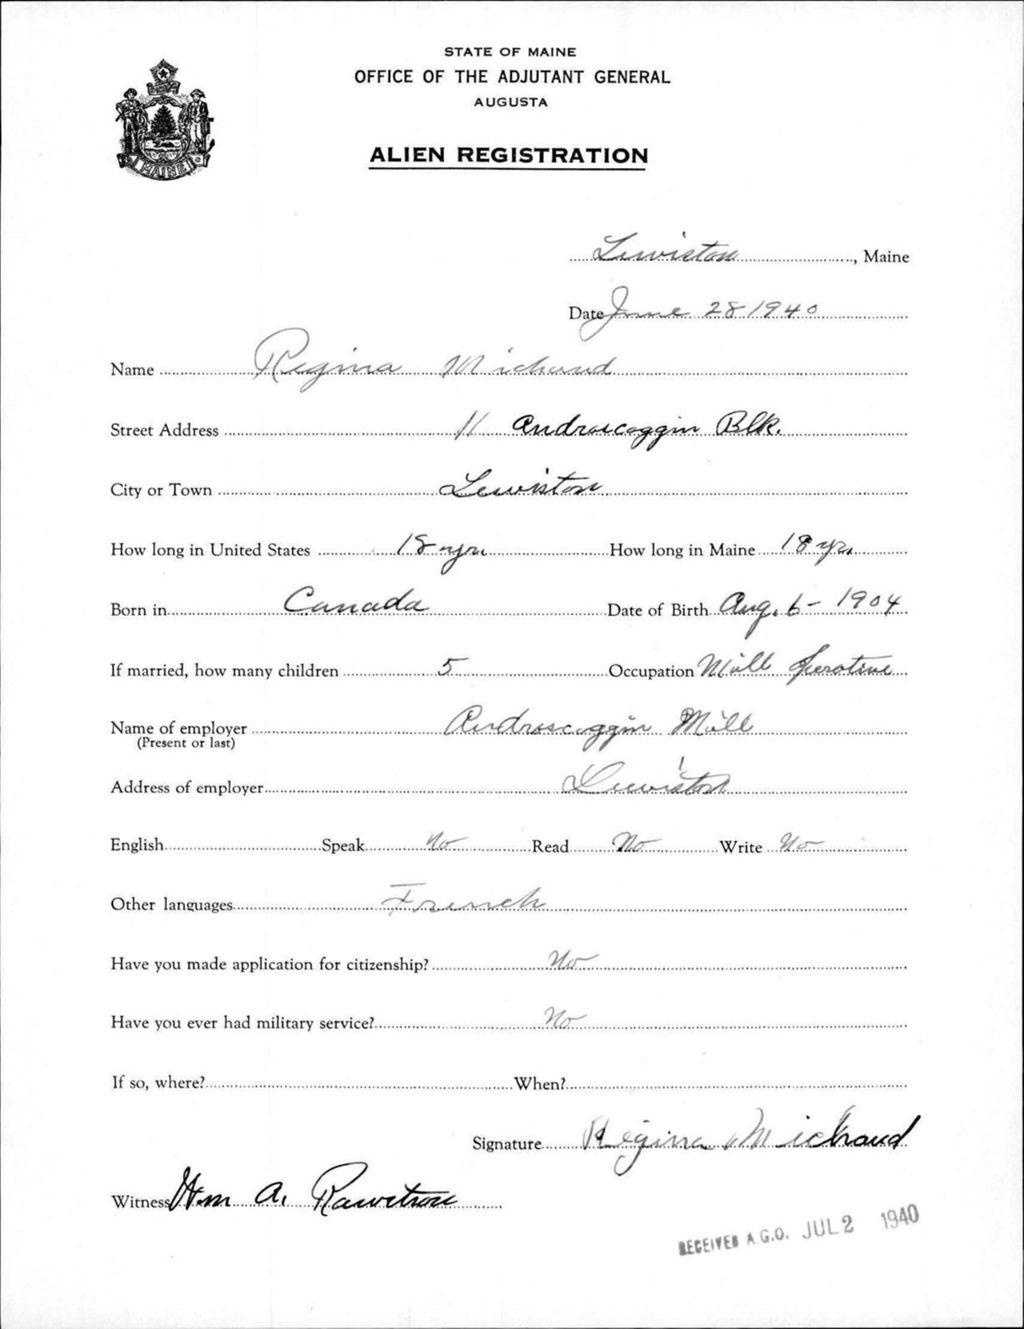 STATE OF MAINE
OFFICE OF THE ADJUTANT GENERAL
AUGUSTA
ALIEN REGISTRATION
MAINE
Lewiston, Maine
Date June 28 1940
Name Regina Michaud
Street Address 11 Androscoggin Blk.
City or Town Lewiston
How long in United States 18 yrs How long in Maine 18 yrs
Born in Canada Date of Birth Aug. 6 - 1904
If married, how many children 5 Occupation Mill Operative
Name of employer Androscoggin Mill
(Present or last)
Address of employer Lewiston
English Speak No Read No Write No
Other languages French
Have you made application for citizenship? No
Have you ever had military service? No
If so, where? When?
Signature Regina Michaud
Witness Wm A.
RECEIVED A.G.O. JUL 2 1940